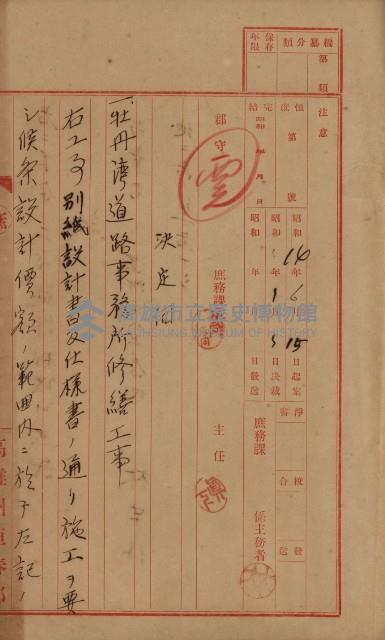 編纂分類
第 類
保存年限
注意
恒 第 號
完結 昭和 年 月 日
昭和 14年 6月 15日起案
昭和 年 月 日決裁
昭和 年 月 日發送
淨書
校合
發送
郡守
庶務課
主任
庶務課
係主務者
決定
一、牡丹湾道路事務所修繕工事
右工事別紙設計書及仕様書ノ通リ施工ヲ要
シ候条設計價額ノ範囲内ニ於テ左記ノ
高雄市立歷史博物館
KAOHSIUNG MUSEUM OF HISTORY
高雄州